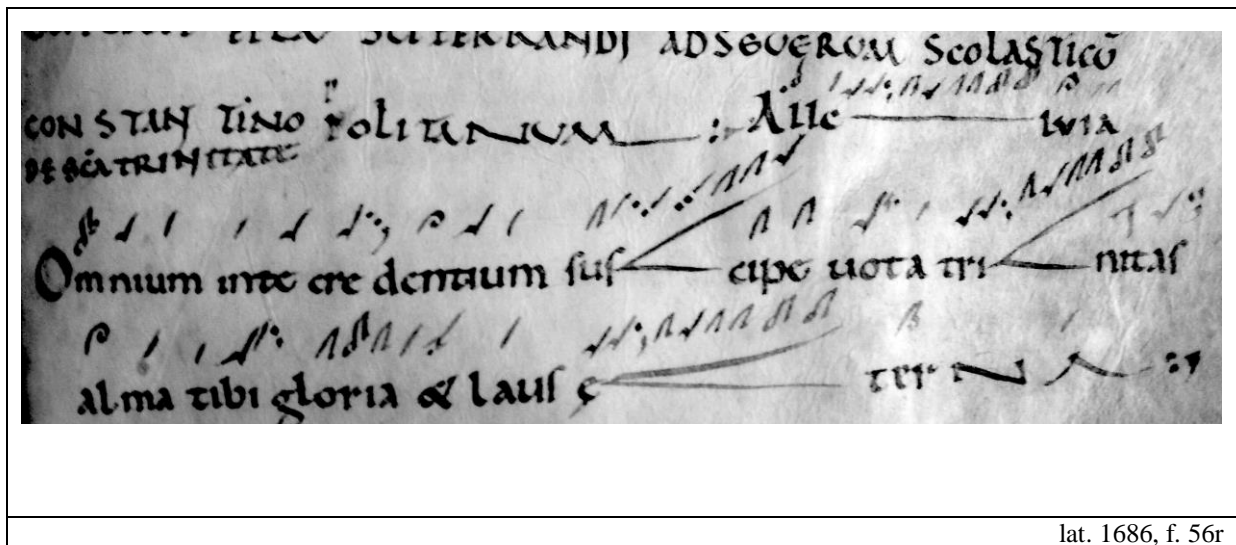 SCI FERRANDI ADSEUERUM SCOLASTICŪ
CONSTANTINOPOLITANUM :- Alle luia
DE SCĀ TRINITATE
Omnium inte cre dentium sus cipe uota tri nitas
alma tibi gloria & laus ę ter NA
lat. 1686, f. 56r